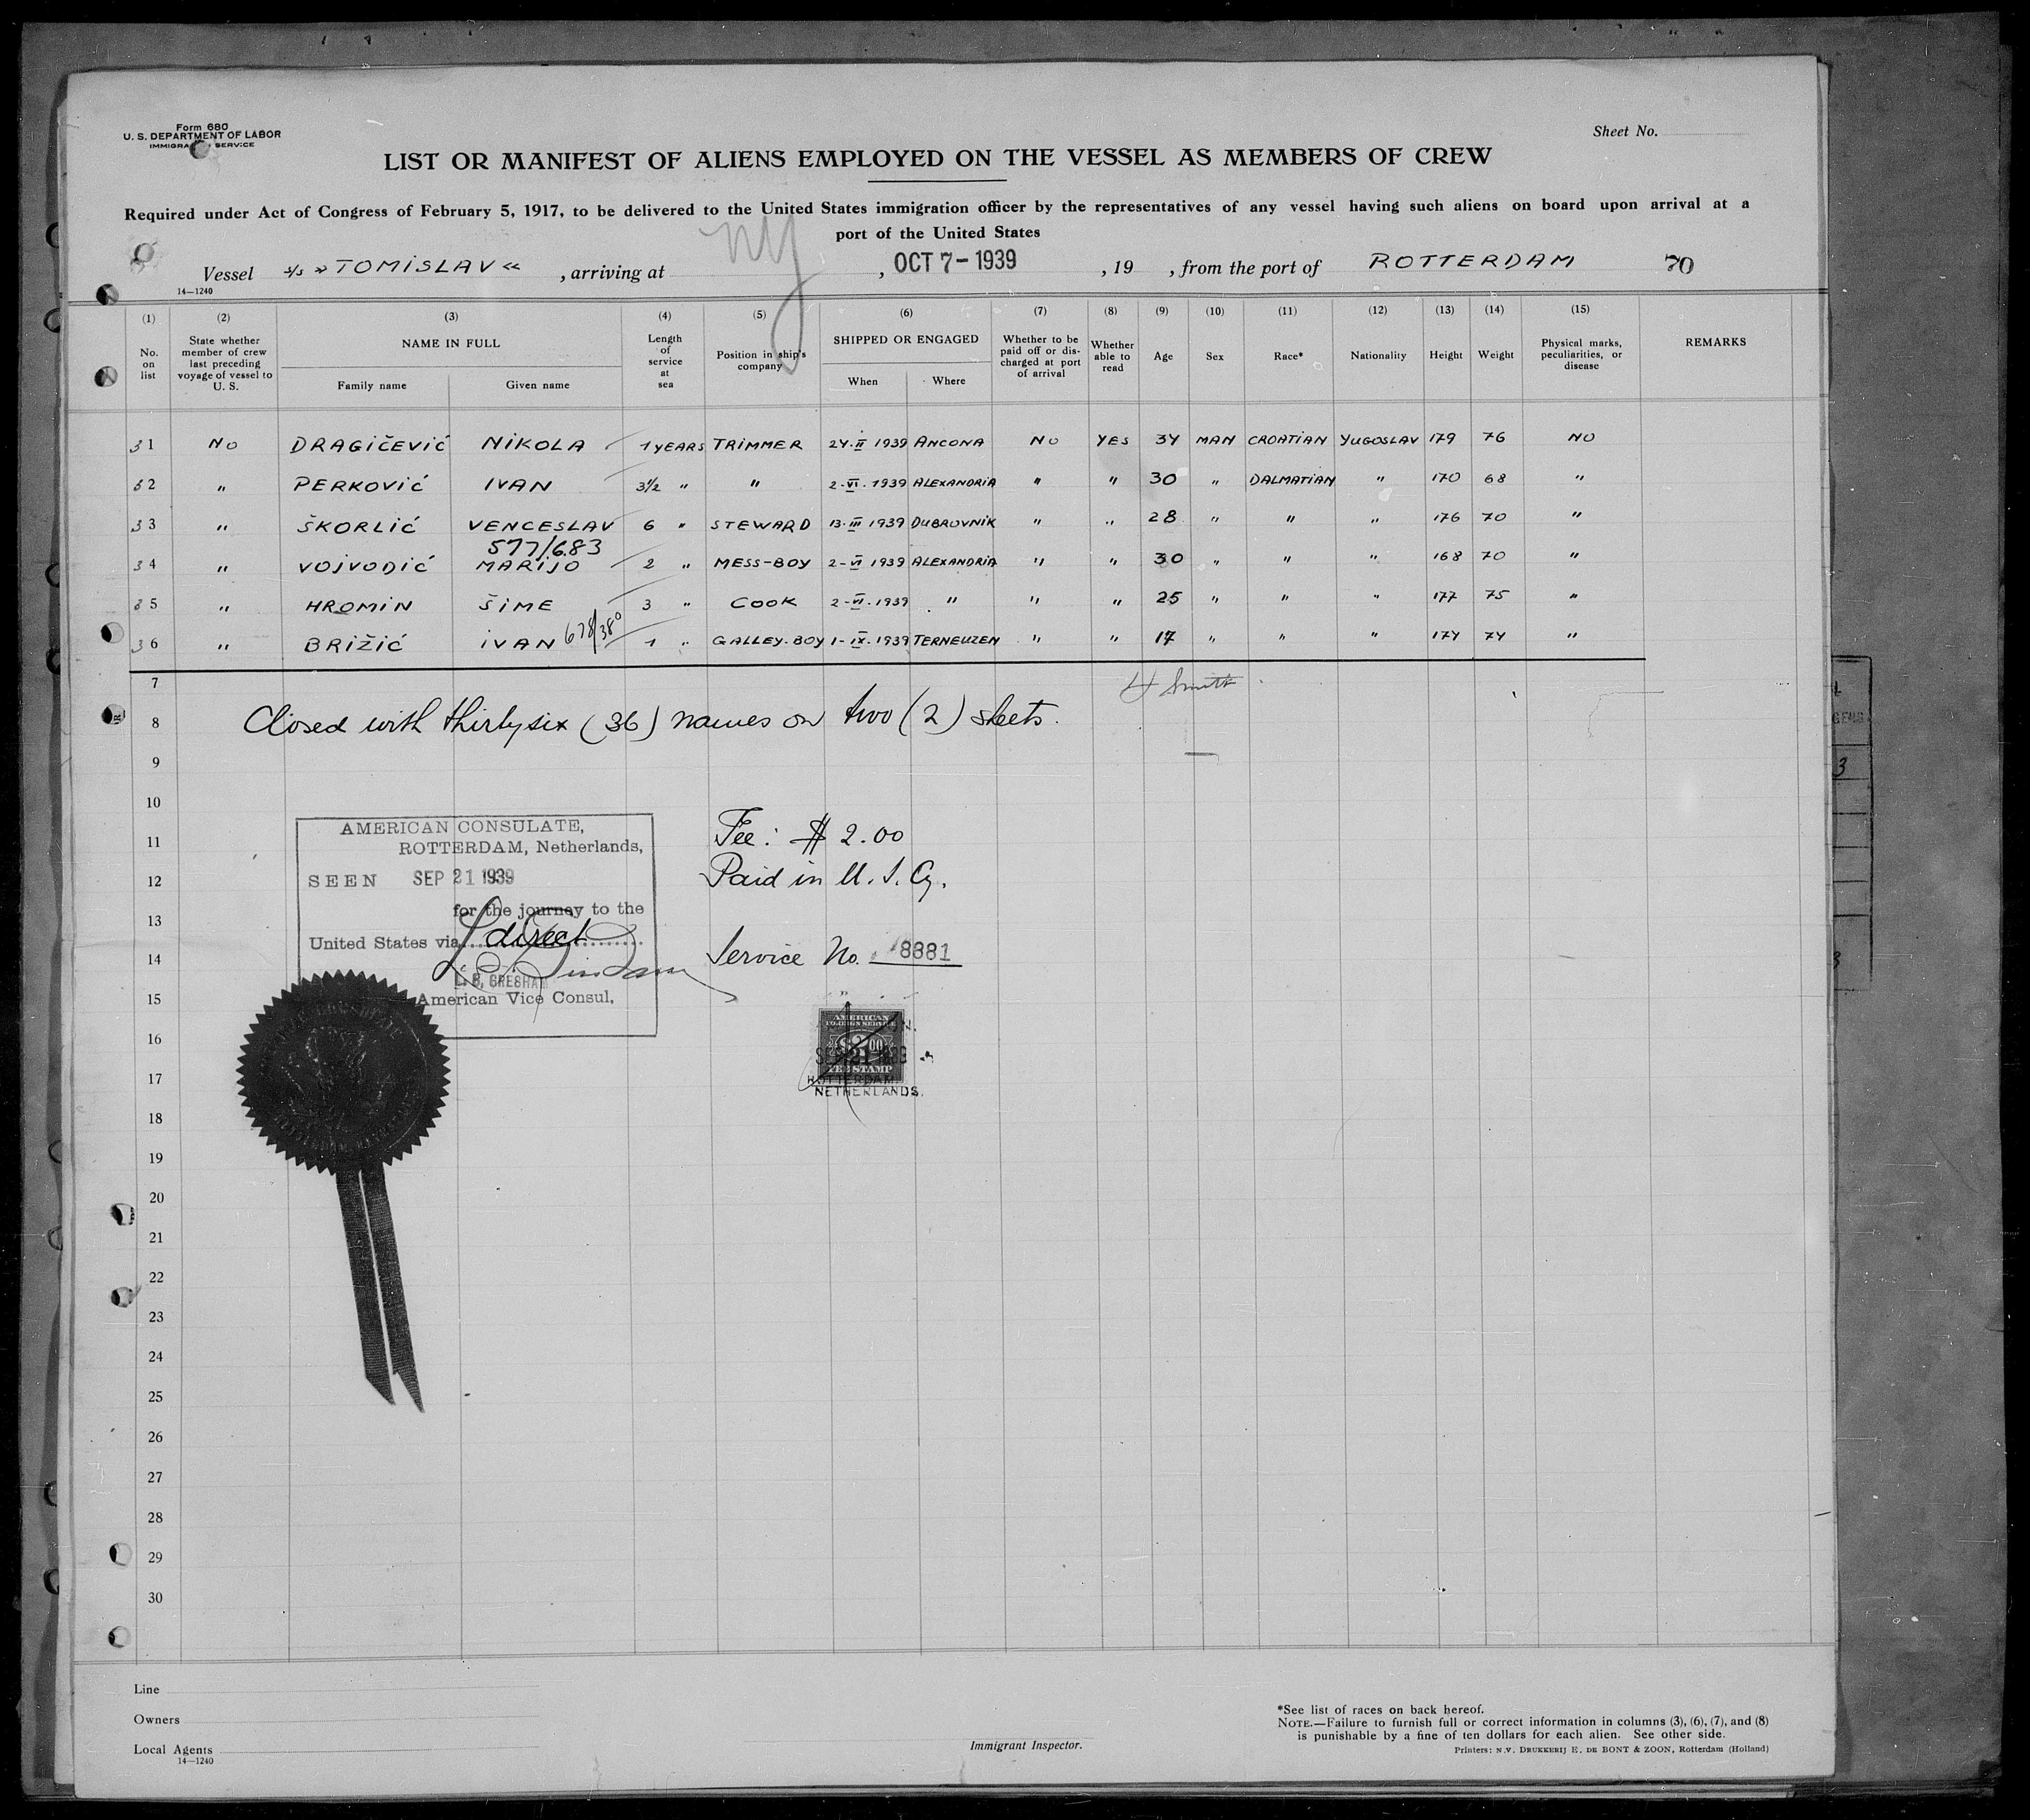 Form 680
U. S. DEPARTMENT OF LABOR
SERVICE
Sheet No.
LIST OR MANIFEST OF ALIENS EMPLOYED ON THE VESSEL AS MEMBERS OF CREW
Required under Act of Congress of February 5, 1917, to be delivered to the United States immigration officer by the representatives of any vessel having such aliens on board upon arrival at a
port of the United States
Vessel s/s »TOMISLAV« , arriving at NY , OCT 7 - 1939 , 19 , from the port of ROTTERDAM 70
14—1240
(1) (2) (3) (4) (5) (6) (7) (8) (9) (10) (11) (12) (13) (14) (15)
No. on list State whether member of crew last preceding voyage of vessel to U. S. NAME IN FULL Family name Given name Length of service at sea Position in ship's company SHIPPED OR ENGAGED When Where Whether to be paid off or discharged at port of arrival Whether able to read Age Sex Race* Nationality Height Weight Physical marks, peculiarities, or disease REMARKS
31 NO DRAGIČEVIĆ NIKOLA 1 YEARS TRIMMER 24.II 1939 ANCONA NO YES 34 MAN CROATIAN YUGOSLAV 179 76 NO
32 " PERKOVIĆ IVAN 3½ " " 2-VI. 1939 ALEXANDRIA " " 30 " DALMATIAN " 170 68 "
33 " ŠKORLIĆ VENCESLAV 6 " STEWARD 13-III 1939 DUBROVNIK " " 28 " " " 176 70 "
577/683
34 " VOJVODIĆ MARIJO 2 " MESS-BOY 2-VI 1939 ALEXANDRIA " " 30 " " " 168 70 "
35 " HROMIN ŠIME 3 " COOK 2-VI.1939 " " " 25 " " " 177 75 "
36 " BRIŽIĆ IVAN 678/380 1 " GALLEY-BOY 1-IX.1939 TERNEUZEN " " 17 " " " 174 74 "
7
Smith
8 Closed with thirtysix (36) names on two (2) sheets.
9
10
AMERICAN CONSULATE,
ROTTERDAM, Netherlands,
11 Fee: $ 2.00
SEEN SEP 21 1939
12 Paid in U. S. Cy.
for the journey to the
13
United States via direct
14 Service No. 8881
L. B. GRESHAM
American Vice Consul,
15
AMERICAN
FOREIGN SERVICE
16
$2.00
SEP 21 1939
FEE STAMP
17
ROTTERDAM
NETHERLANDS.
18
19
20
21
22
23
24
25
26
27
28
29
30
Line
Owners
Local Agents
14—1240
Immigrant Inspector.
*See list of races on back hereof.
NOTE.—Failure to furnish full or correct information in columns (3), (6), (7), and (8)
is punishable by a fine of ten dollars for each alien. See other side.
Printers: N.V. DRUKKERIJ E. DE BONT & ZOON, Rotterdam (Holland)